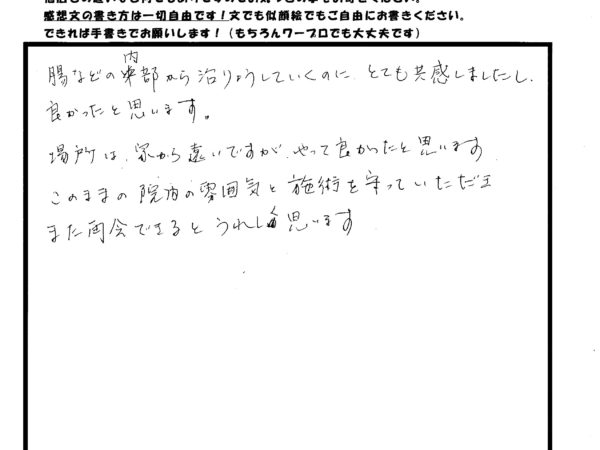 感想文の書き方は一切自由です！文でも似顔絵でもご自由にお書きください。
できれば手書きでお願いします！（もちろんワープロでも大丈夫です）
腸などの内部から治りょうしていくのに、とても共感しましたし、
良かったと思います。
場所は、家から遠いですが、やって良かったと思います
このままの院内の雰囲気と施術を守っていただき
また再会できるとうれしく思います